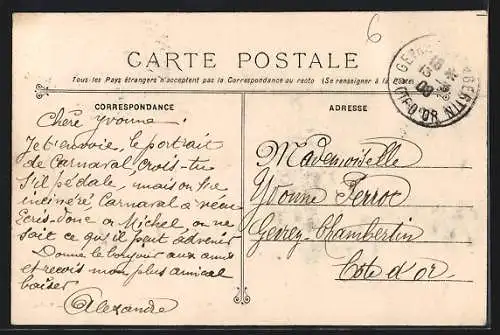 6
CARTE POSTALE
Tous les Pays étrangers n'acceptent pas la Correspondance au recto (Se renseigner à la
GEVREY-CHAMBERTIN
13
09
COTE-D'OR
CORRESPONDANCE
ADRESSE
Chère Yvonne :
Je t'envoie, le portrait
de Carnaval, crois-tu
s'il pédale, mais on
incinéré Carnaval a vécu
Ecris-donc à Michel, on ne
sait ce qu'il peut advenir
Donne le bonjour aux amis
et reçois mon plus amical
baiser
Alexandre
Mademoiselle
Yvonne Perrot
Gevrey-Chambertin
Côte d'Or